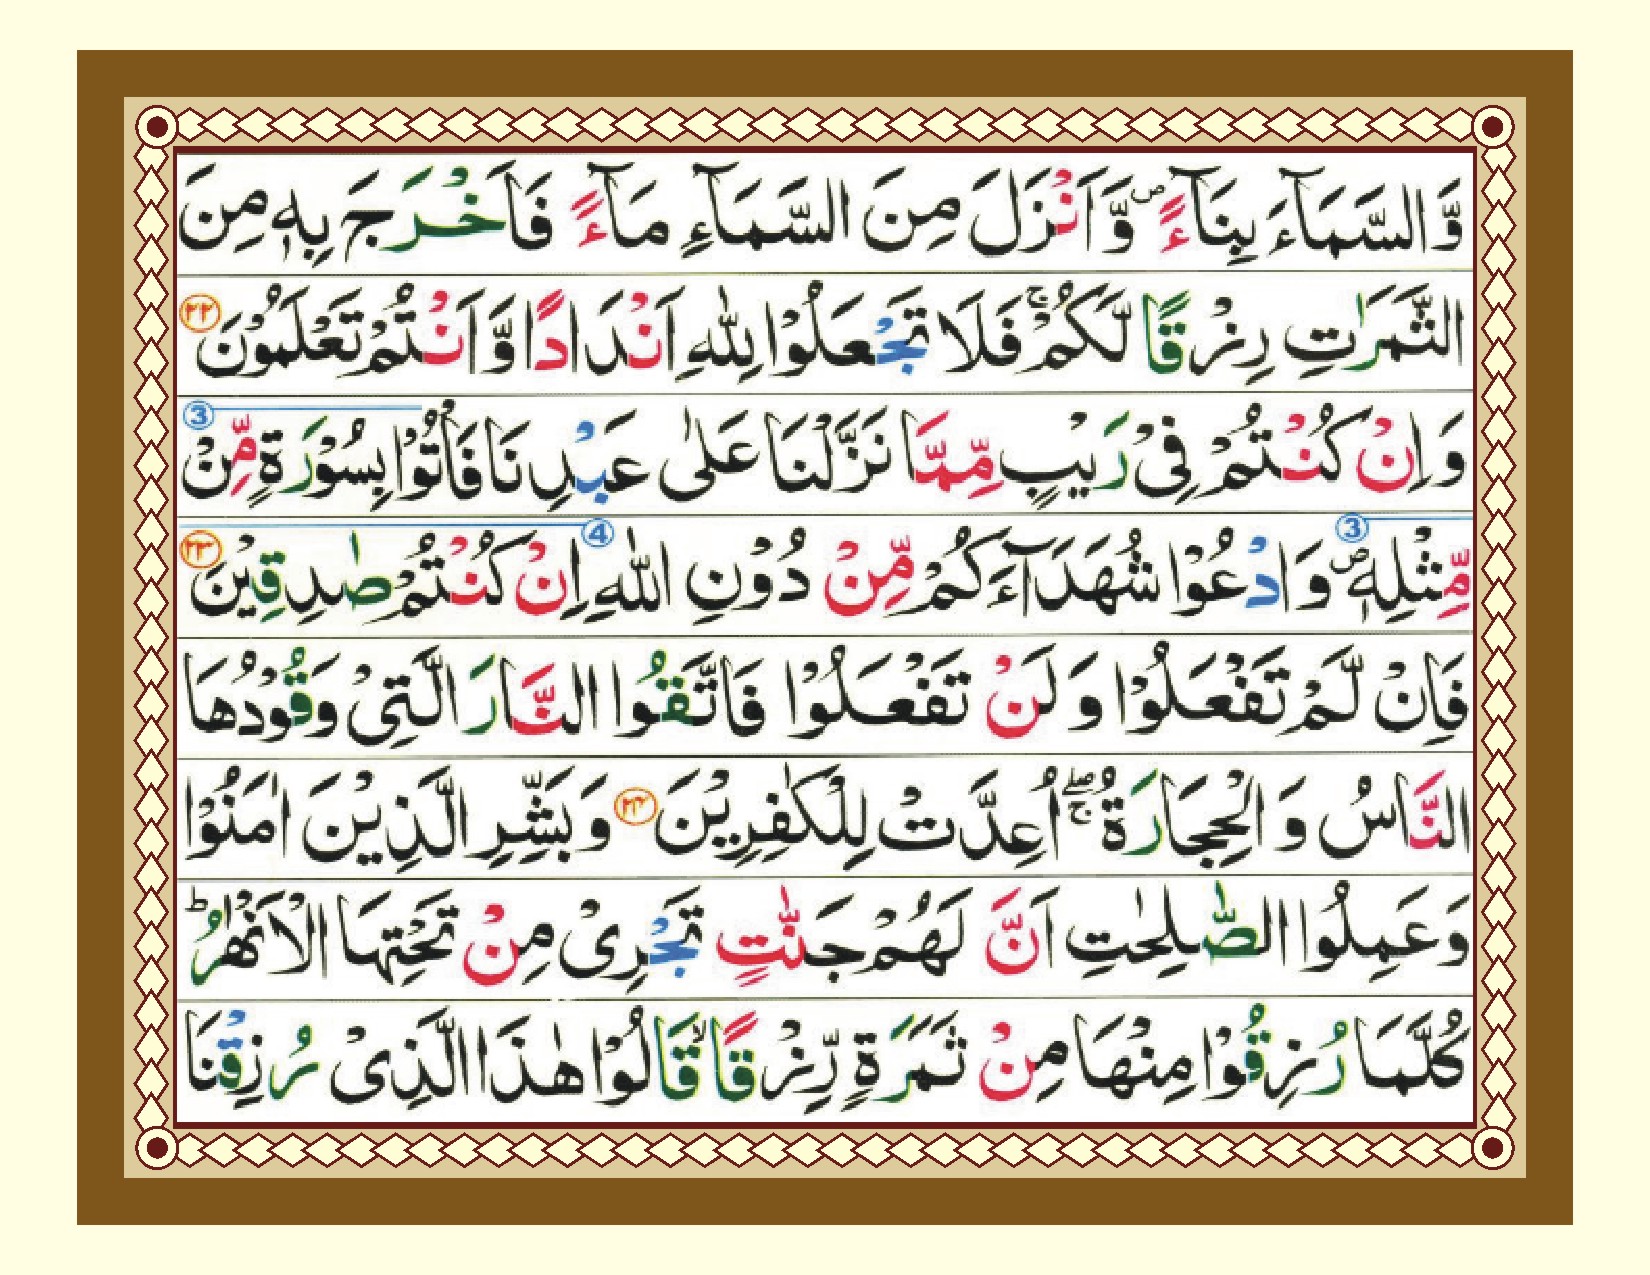 وَّالسَّمَآءَ بِنَآءً ۪ وَّاَنْزَلَ مِنَ السَّمَآءِ مَآءً فَاَخْرَجَ بِهٖ مِنَ
الثَّمَرٰتِ رِزْقًا لَّكُمْ ۚ فَلَا تَجْعَلُوْا لِلّٰهِ اَنْدَادًا وَّاَنْتُمْ تَعْلَمُوْنَ ۲۲
وَاِنْ كُنْتُمْ فِىْ رَيْبٍ مِّمَّا نَزَّلْنَا عَلٰى عَبْدِنَا فَاْتُوْا بِسُوْرَةٍ مِّنْ 3
مِّثْلِهٖ ۪ 3 وَادْعُوْا شُهَدَآءَكُمْ مِّنْ دُوْنِ اللّٰهِ 4 اِنْ كُنْتُمْ صٰدِقِيْنَ ۲۳
فَاِنْ لَّمْ تَفْعَلُوْا وَلَنْ تَفْعَلُوْا فَاتَّقُوا النَّارَ الَّتِىْ وَقُوْدُهَا
النَّاسُ وَالْحِجَارَةُ ۖۚ اُعِدَّتْ لِلْكٰفِرِيْنَ ۲۴ وَبَشِّرِ الَّذِيْنَ اٰمَنُوْا
وَعَمِلُوا الصّٰلِحٰتِ اَنَّ لَهُمْ جَنّٰتٍ تَجْرِىْ مِنْ تَحْتِهَا الْاَنْهٰرُ ؕ
كُلَّمَا رُزِقُوْا مِنْهَا مِنْ ثَمَرَةٍ رِّزْقًا ۙ قَالُوْا هٰذَا الَّذِىْ رُزِقْنَا